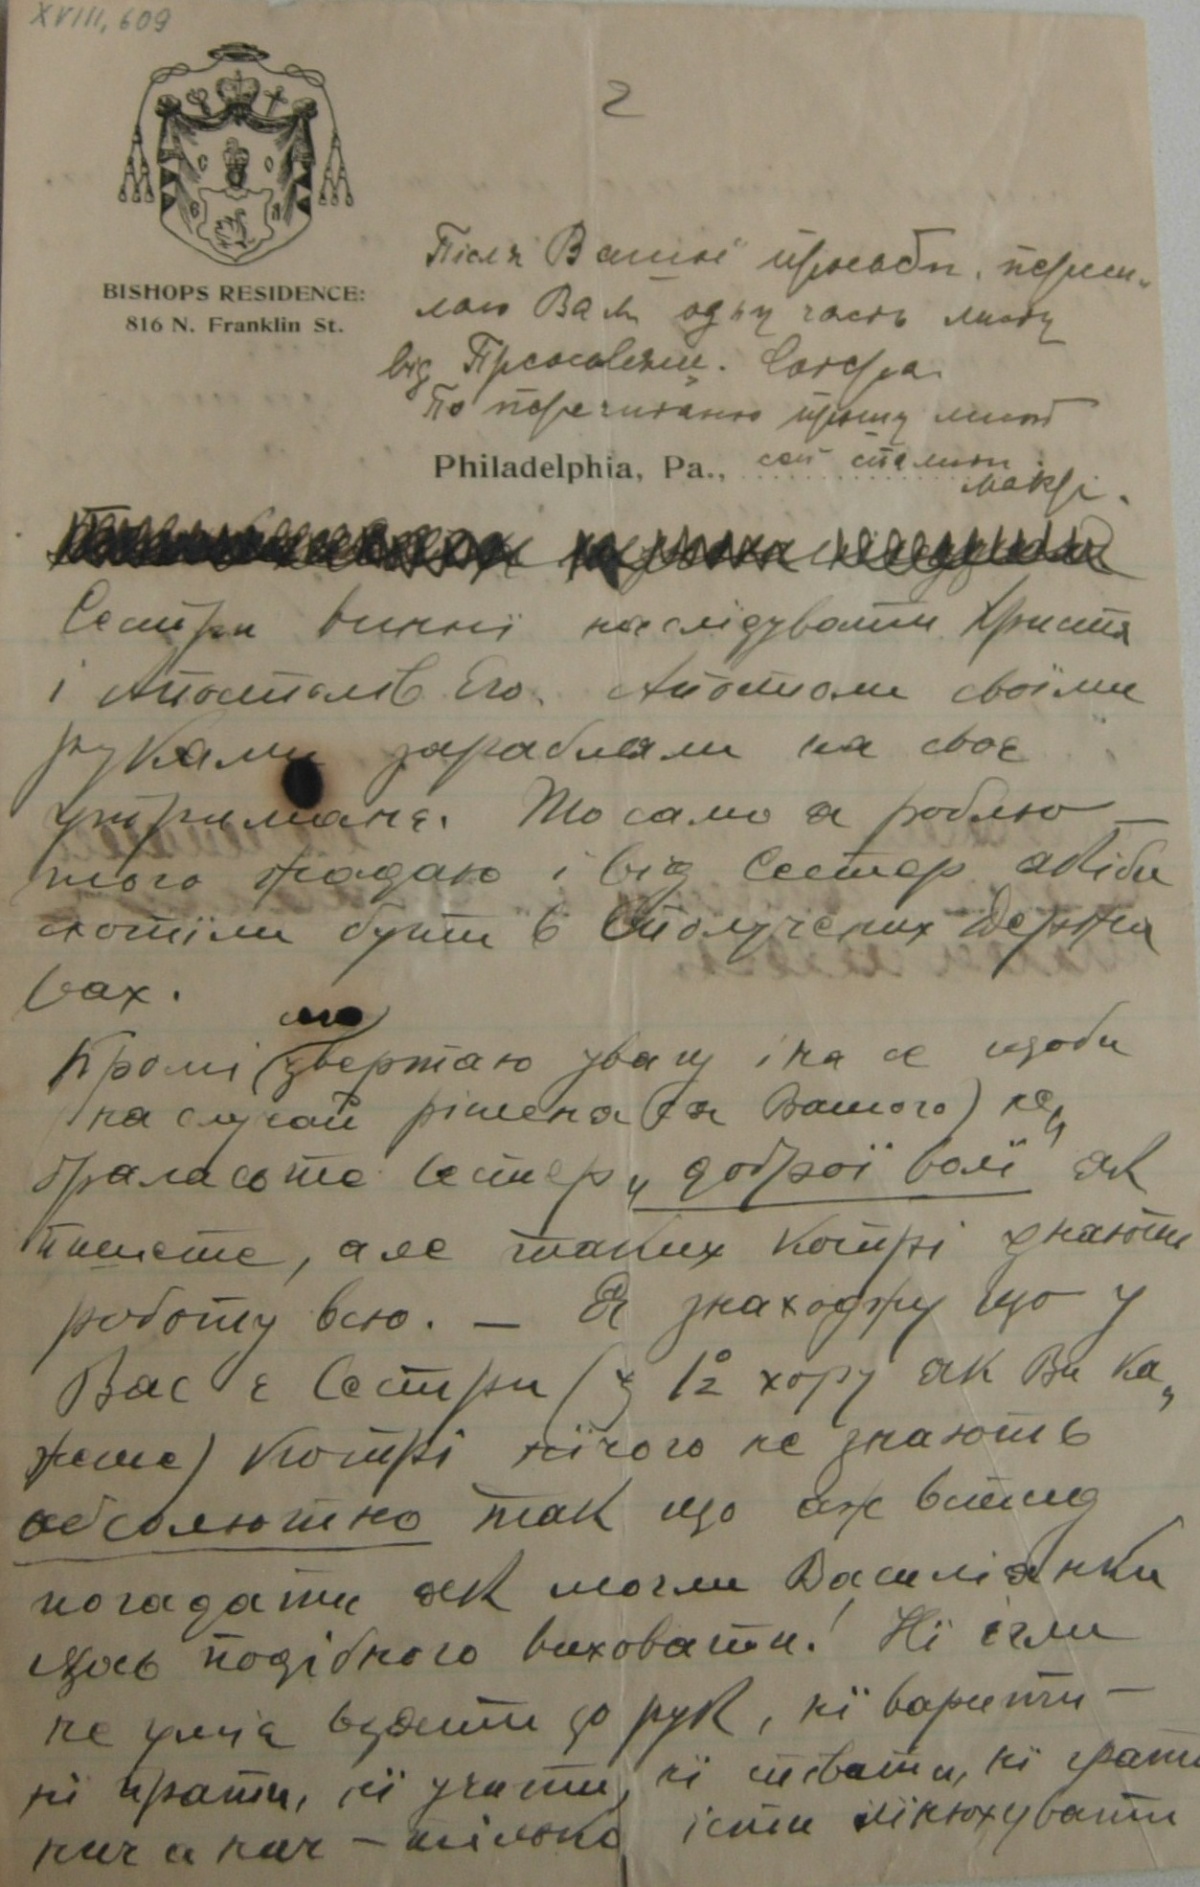 XVIII, 609
2
BISHOPS RESIDENCE:
816 N. Franklin St.
Після Вашої прозьби, переси-
лаю Вам одну часть листу
від Преосвящ. Сотера
По перечитаню прошу лист
Philadelphia, Pa.,
сей спалити.
Сестри винні наслідувати Христа
і Апостолів Єго. Апостоли своїми
руками зарабляли на своє
утриманє. То само я роблю —
того жадаю і від Сестер якіби
хотїли бути в Сполучених Держа
вах.
Кромі звертаю увагу і на се щоби
на случай рішеня (за Вашого) не„
бралисьте Сестер „доброї волї" як
пишете, але таких котрі знають
роботу всю. — Я знаходжу що у
Вас є Сестри (з 1º хору як Ви ка„
жете) котрі нїчого не знають
абсолютно так що аж встид
погадати як могли Василіянки
щось подібного виховати! Нї ігли
не уміє взяти до рук, нї варити —
нї прати, нї учити, нї співати, нї грати
нич а нич — тілько їсти